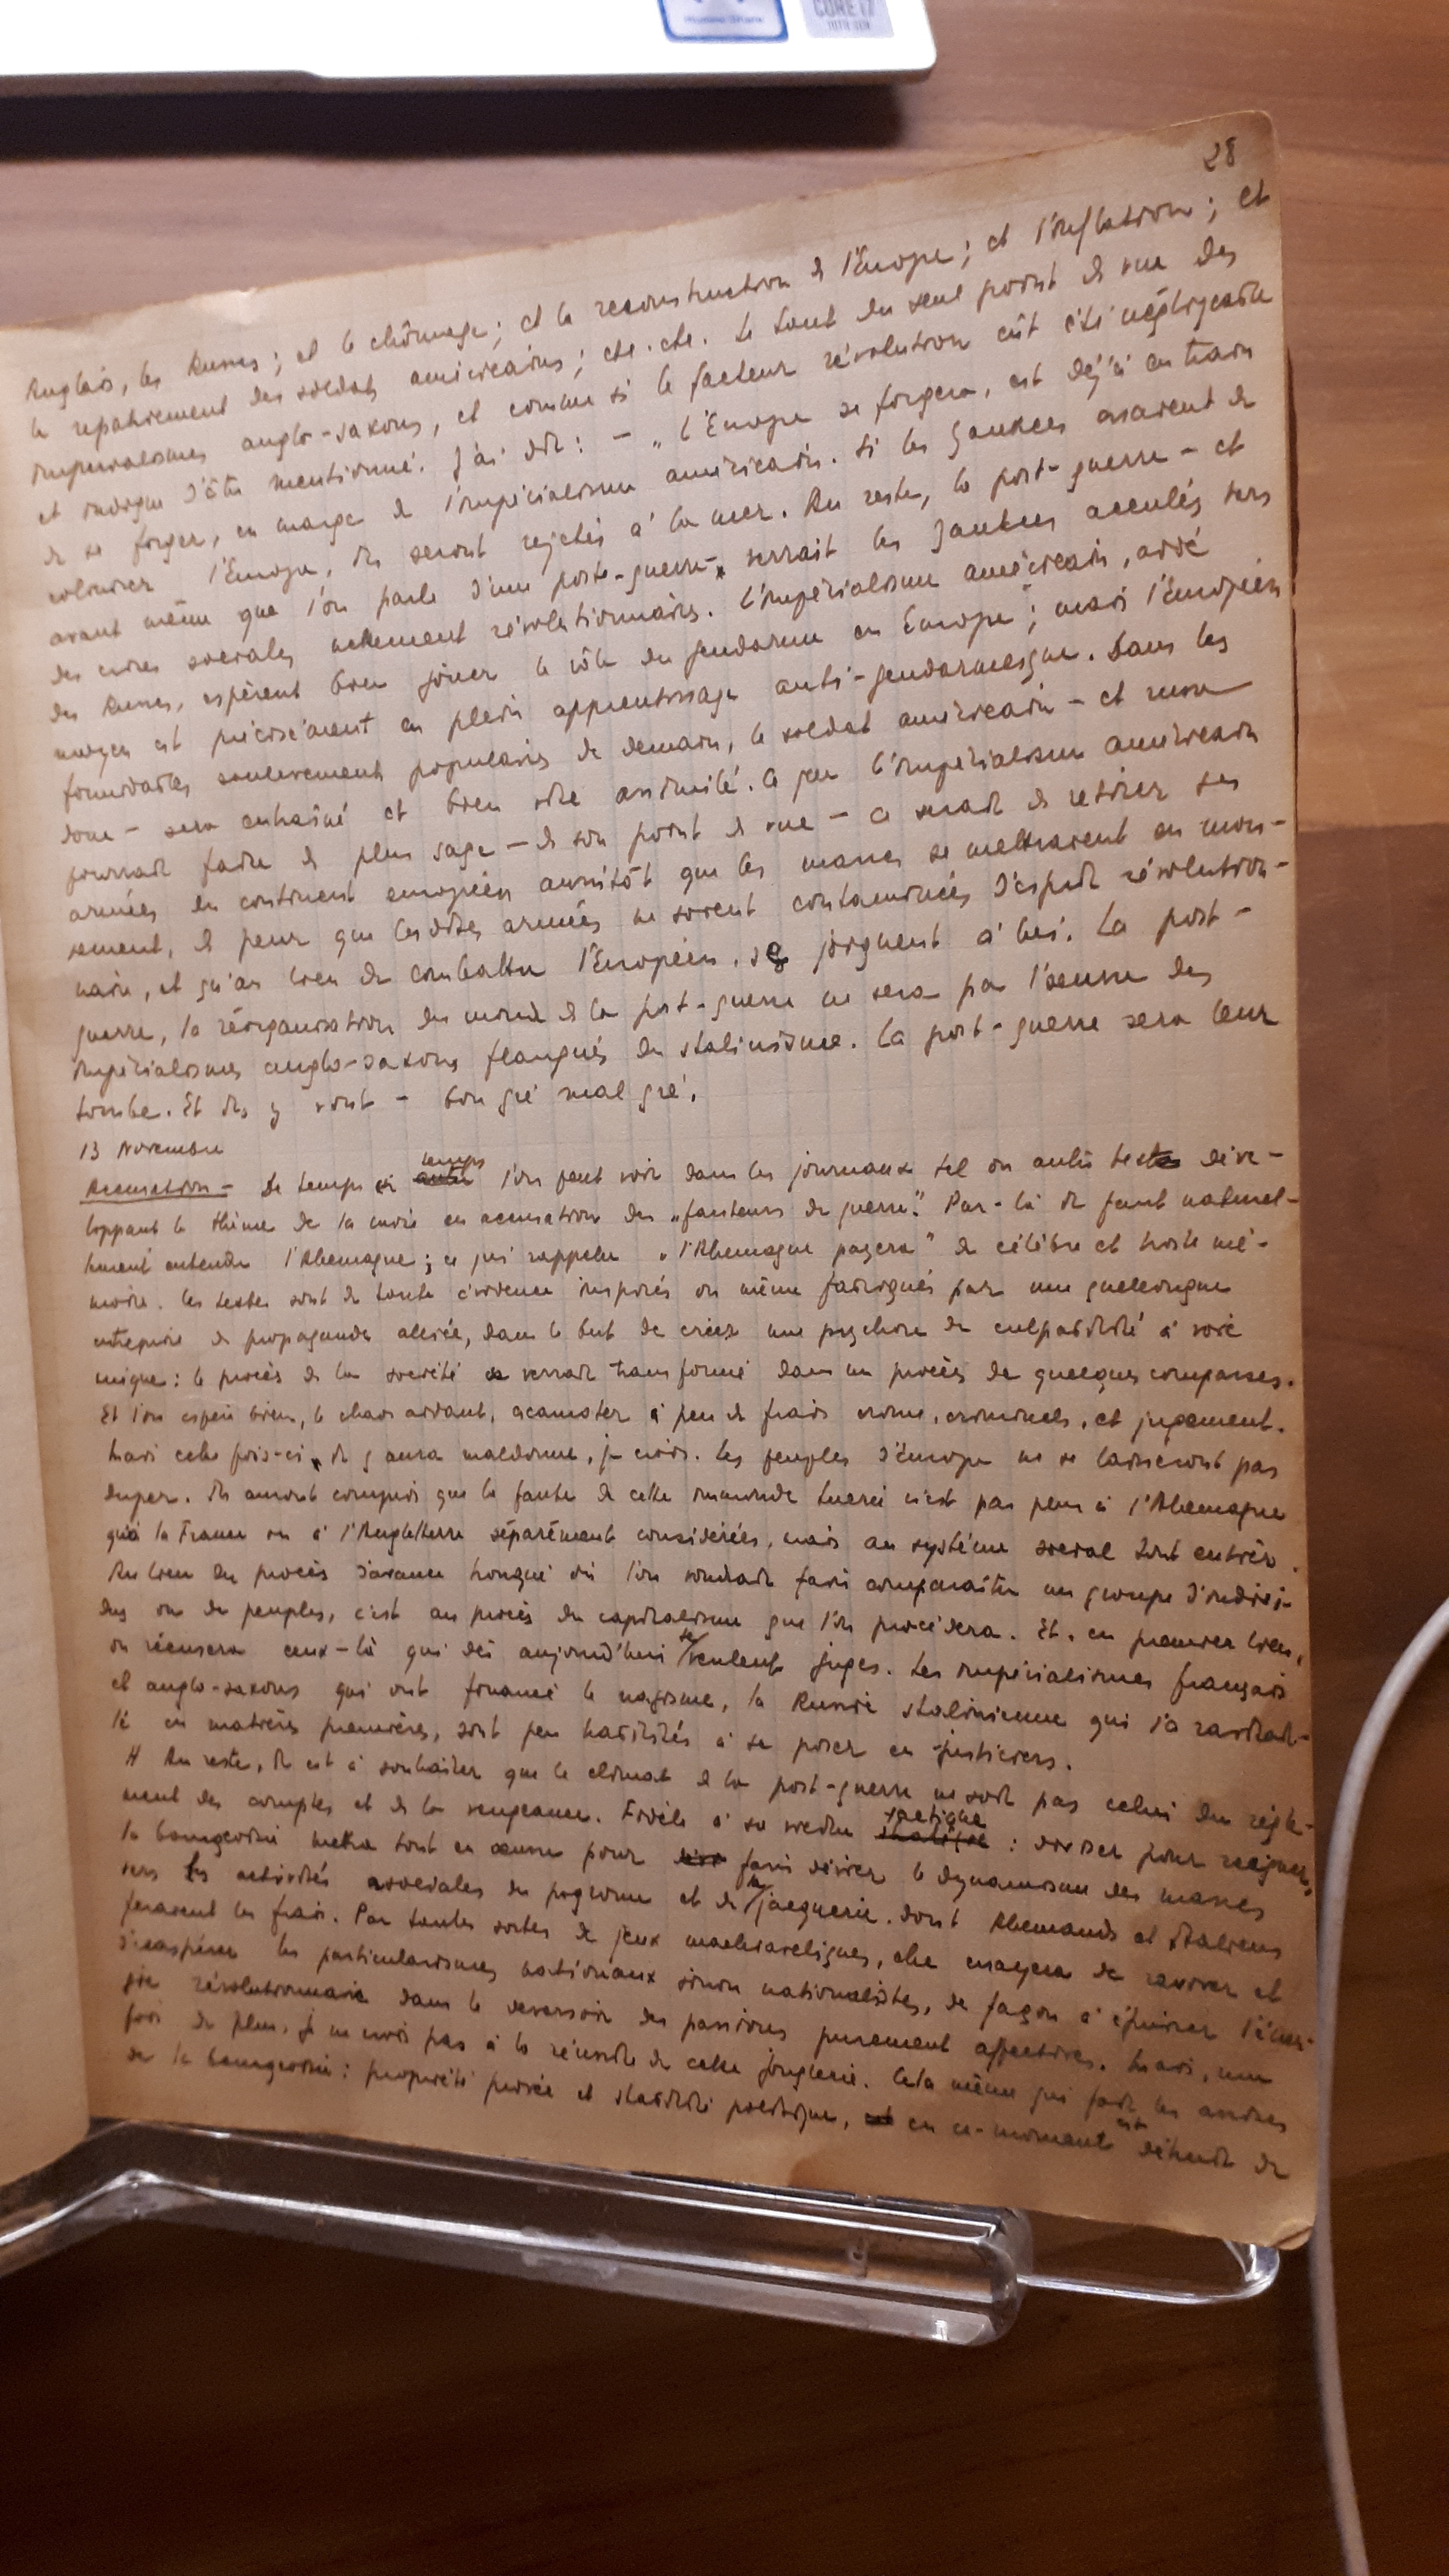 CORE i7
10TH GEN
28
Anglais, les Russes ; et le chômage ; et la reconstruction de l'Europe ; et l'inflation ; et
le rapatriement des soldats américains ; etc. etc. Le tout du seul point de vue des
impérialismes anglo-saxons, et comme si le facteur révolution eût été négligeable
et indigne d'être mentionné. J'ai dit : – „ L'Europe se forgera, est déjà en train
de se forger, en marge de l'impérialisme américain. Si les Yankees essaient de
coloniser l'Europe, ils seront rejetés à la mer. Au reste, la post-guerre – et
avant même que l'on parle d'une post-guerre – verrait les Yankees acculés vers
des crises sociales nettement révolutionnaires. L'impérialisme américain, aidé
des Russes, espèrent bien jouer le rôle du gendarme en Europe ; mais l'Européen
moyen est précisément en plein apprentissage anti-gendarmesque. Dans les
formidables soulèvements populaires de demain, le soldat américain – et russe
donc – sera entraîné et bien vite assimilé. Ce que l'impérialisme américain
pourrait faire de plus sage – de son point de vue – ce serait de retirer ses
armées du continent européen aussitôt que les masses se mettraient en mou-
vement, de peur que lesdites armées ne soient contaminées d'esprit révolution-
naire, et qu'au lieu de combattre l'Européen, se joignent à lui. La post-
guerre, la réorganisation du monde de la post-guerre ne sera pas l'oeuvre des
impérialismes anglo-saxons flanqués du stalinisme. La post-guerre sera leur
tombe. Et ils y vont – bon gré mal gré.
13 Novembre
Accusation – De temps en temps l'on peut voir dans les journaux tel ou autre texte déve-
loppant le thème de la mise en accusation des „fauteurs de guerre". Par-là il faut naturel-
lement entendre l'Allemagne ; ce qui rappelle „l'Allemagne payera" de célèbre et triste mé-
moire. Ces textes sont de toute évidence inspirés ou même fabriqués par une quelconque
entreprise de propagande alliée, dans le but de créer une psychose de culpabilité à voie
unique : le procès de la société se verrait transformé dans un procès de quelques comparses.
Et l'on espère bien, le chaos aidant, escamoter à peu de frais crime, criminels, et jugement.
Mais cette fois-ci, il y aura maldonne, je crois. Les peuples d'Europe ne se laisseront pas
duper. Ils auront compris que la faute de cette immonde tuerie n'est pas plus à l'Allemagne
qu'à la France ou à l'Angleterre séparément considérées, mais au système social tout entier.
Au lieu du procès d'avance tronqué où l'on voudrait faire comparaître un groupe d'indivi-
dus ou de peuples, c'est au procès du capitalisme que l'on procédera. Et, en premier lieu,
on récusera ceux-là qui dès aujourd'hui se veulent juges. Les impérialismes français
et anglo-saxons qui ont financé le nazisme, la Russie stalinienne qui l'a ravitail-
lé en matières premières, sont peu habilités à se poser en justiciers.
// Au reste, il est à souhaiter que le climat de la post-guerre ne soit pas celui du règle-
ment des comptes et de la vengeance. Fidèle à sa vieille tactique : diviser pour reigner,
la bourgeoisie mettra tout en œuvre pour faire dévier le dynamisme des masses
vers les activités asociales du pogrome et de la jacquerie, dont Allemands et Italiens
feraient les frais. Par toutes sortes de jeux machiavéliques, elle essayera de raviver et
d'exaspérer les particularismes nationaux sinon nationalistes, de façon à épuiser l'éner-
gie révolutionnaire dans le déversoir des passions purement affectives. Mais, une
fois de plus, je ne crois pas à la réussite de cette jonglerie. Cela même qui fait les assises
de la bourgeoisie : propriété privée et stabilité politique, en ce-moment est détruit de